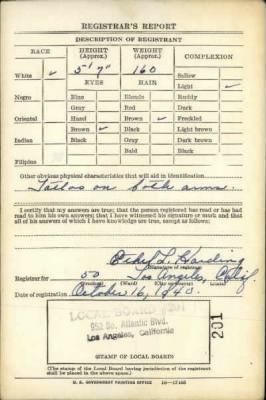 REGISTRAR'S REPORT
DESCRIPTION OF REGISTRANT
RACE HEIGHT (Approx.) WEIGHT (Approx.) COMPLEXION
White ✓ 5' 7" 160 Sallow
EYES HAIR Light ✓
Negro Blue Blonde Ruddy
Gray Red Dark
Oriental Hazel Brown ✓ Freckled
Brown ✓ Black Light brown
Indian Black Gray Dark brown
Bald Black
Filipino
Other obvious physical characteristics that will aid in identification
Tattoos on both arms.
I certify that my answers are true; that the person registered has read or has had
read to him his own answers; that I have witnessed his signature or mark and that
all of his answers of which I have knowledge are true, except as follows:
Ethel L. Harding
(Signature of registrar)
Registrar for 50 Los Angeles, Calif
(Precinct) (Ward) (City or county) (State)
Date of registration October 16, 1940.
LOCAL BOARD #201
952 So. Atlantic Blvd.
Los Angeles, California
201
STAMP OF LOCAL BOARD
(The stamp of the Local Board having jurisdiction of the registrant
shall be placed in the above space.)
U. S. GOVERNMENT PRINTING OFFICE 16—17105